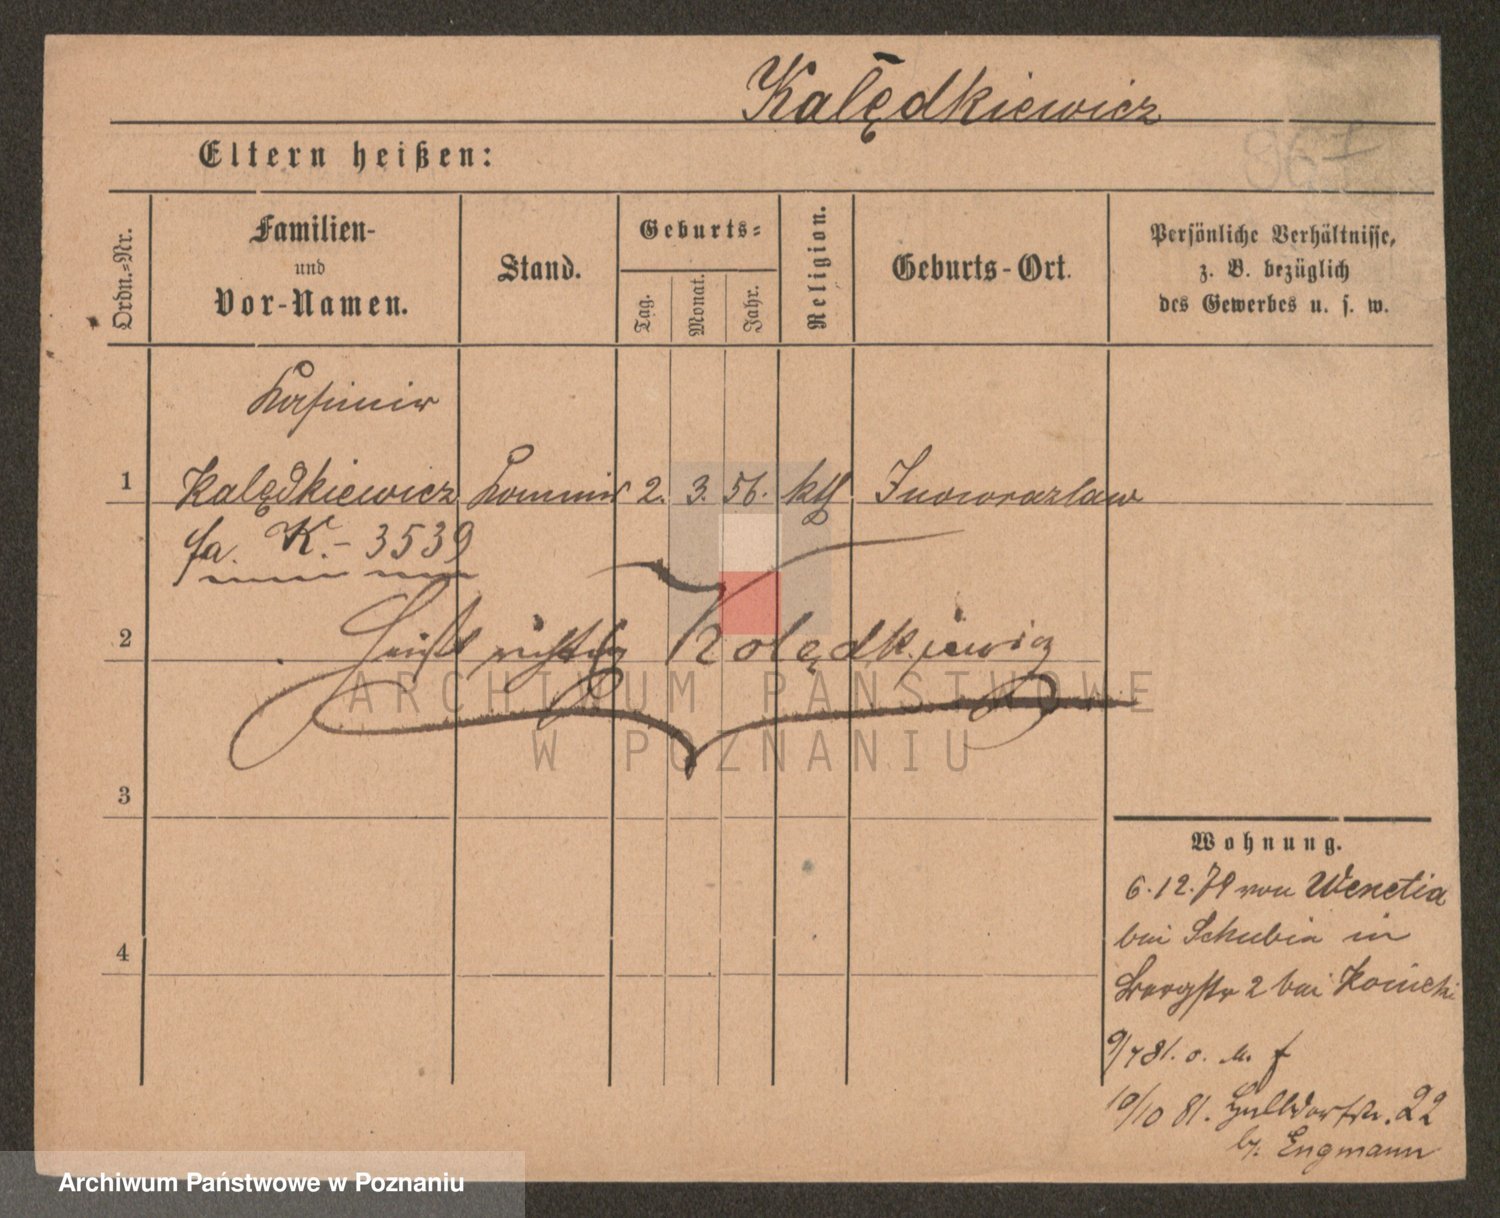 Kalędkiewicz
Eltern heißen:
Ordn.=Nr.
Familien-
und
Vor-Namen.
Stand.
Geburts=
Tag.
Monat.
Jahr.
Religion.
Geburts-Ort.
Persönliche Verhältnisse,
z. B. bezüglich
des Gewerbes u. s. w.
Kasimir
1 Kalędkiewicz Kommis 2. 3. 56. kth Inowrazlaw
fa. K.- 3539
2 Heißt richtig Kolędkiewicz
ARCHIWUM PAŃSTWOWE
W POZNANIU
3
4
Wohnung.
6.12.79 von Wenetia
bei Schubin in
Bergstr 2 bei
9/7 81. o.
10/10 81. 22
b. Engmann
Archiwum Państwowe w Poznaniu